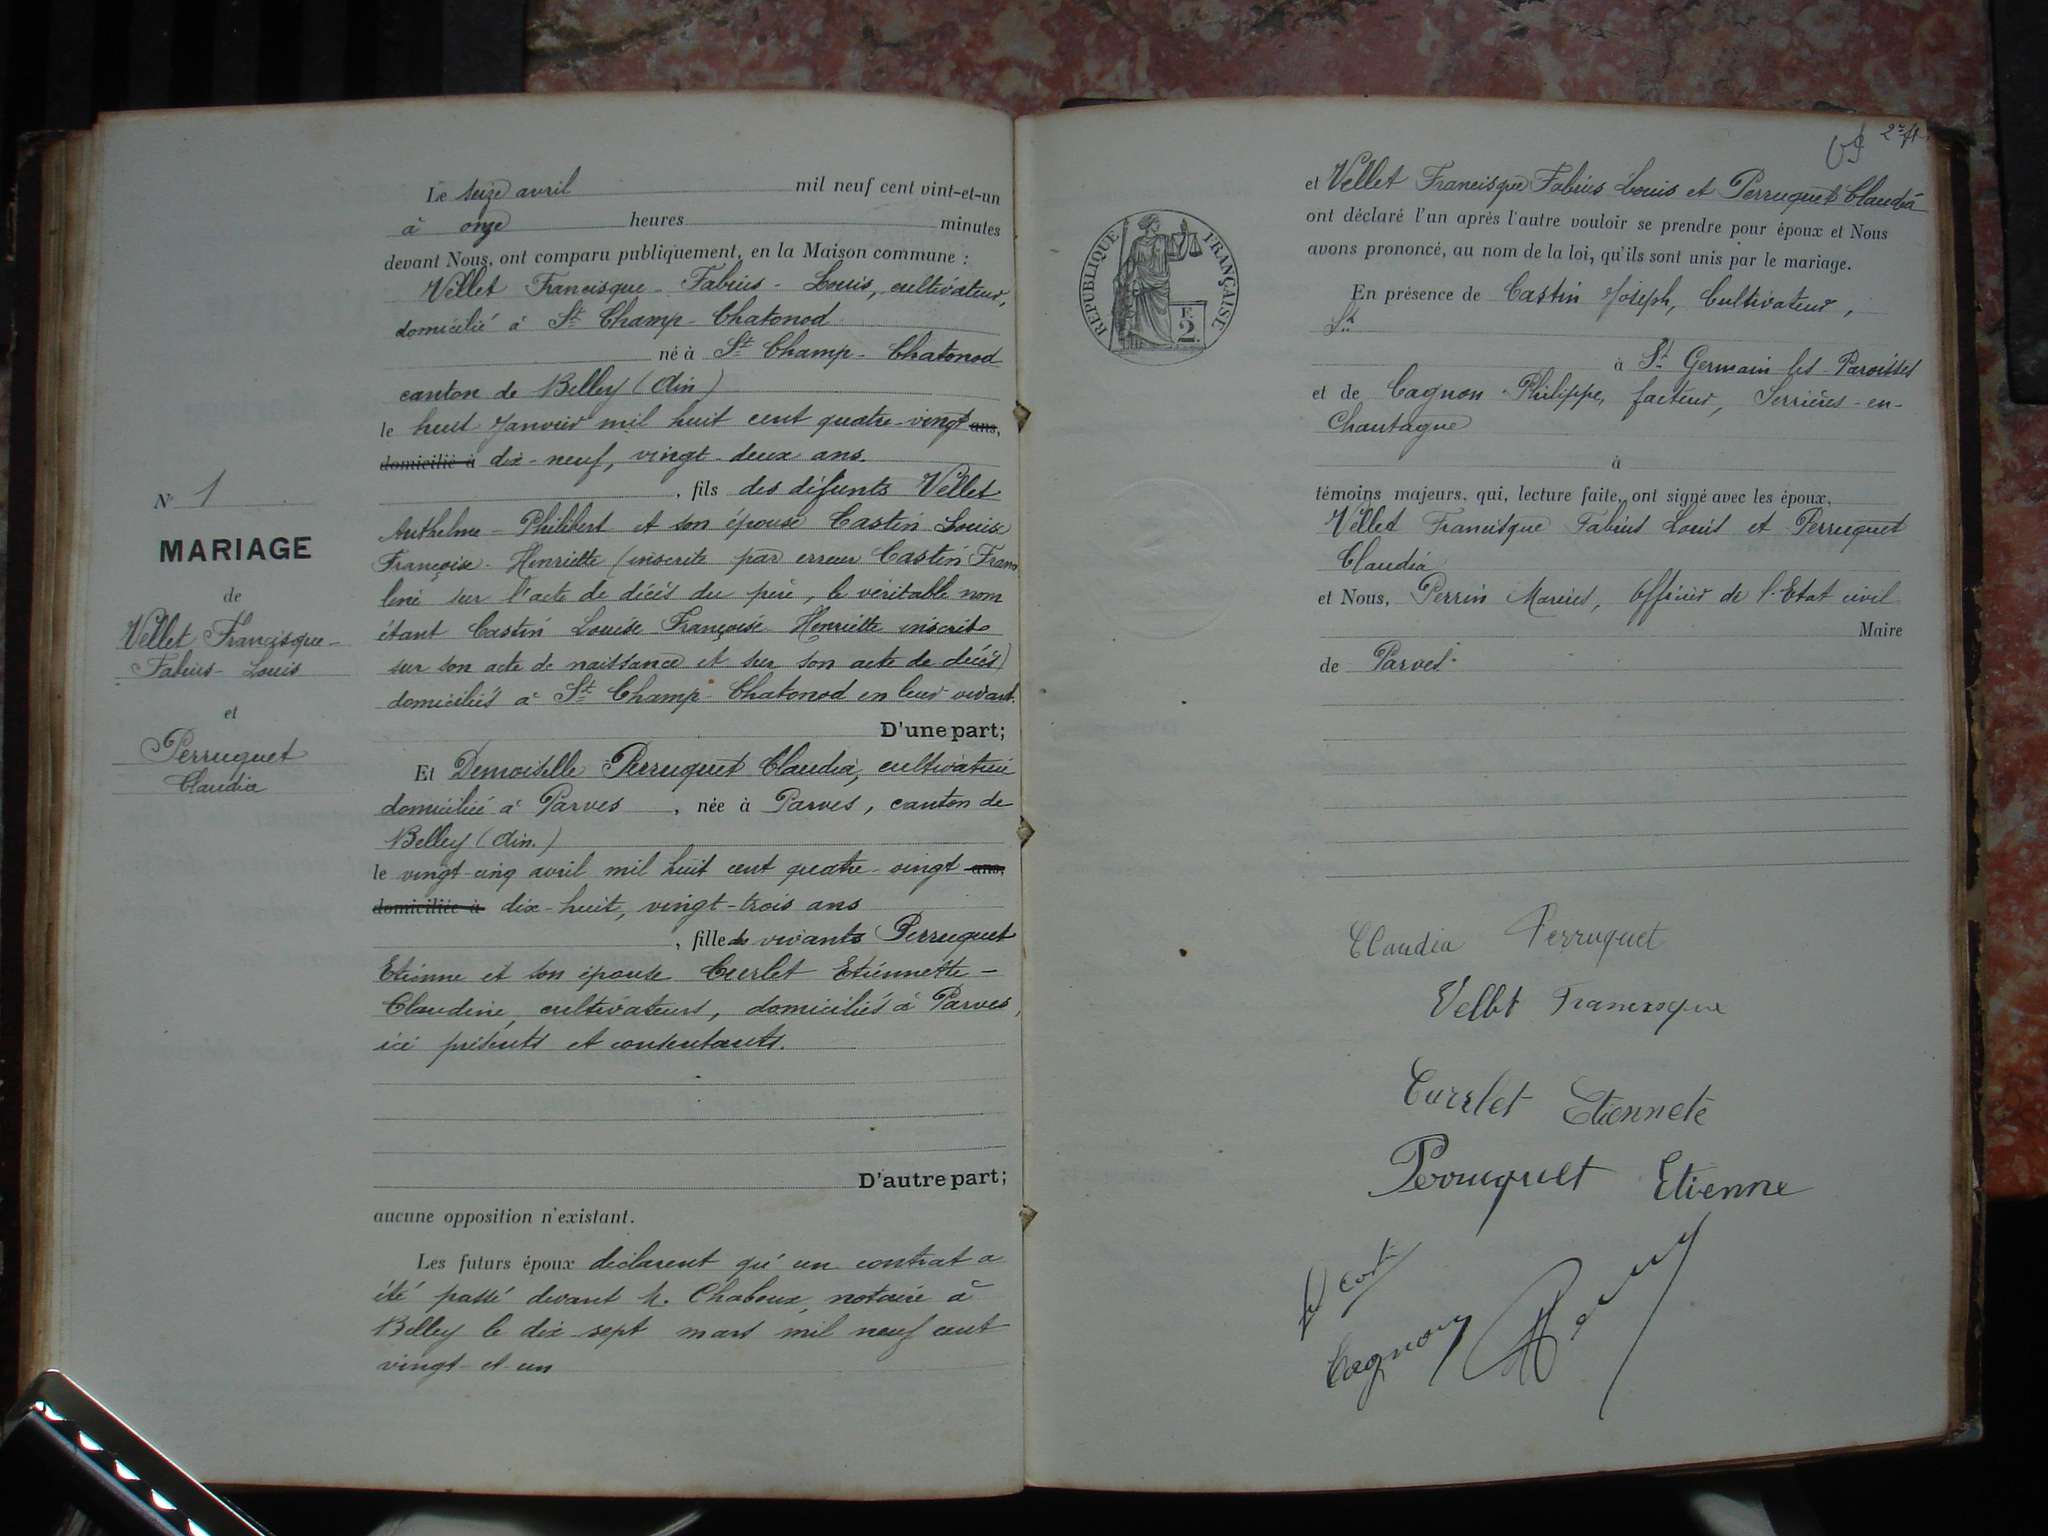 N° 1
MARIAGE
de
Vellet Francisque-
Fabius-Louis
et
Perruquet
Claudia
Le seize avril mil neuf cent vint-et-un
à onze heures minutes
devant Nous, ont comparu publiquement, en la Maison commune :
Vellet Francisque-Fabius-Louis, cultivateur,
domicilié à St Champ-Chatonod
né à St Champ-Chatonod
canton de Belley (Ain)
le huit Janvier mil huit cent quatre-vingt ans,
domicilié à dix-neuf, vingt-deux ans.
, fils des défunts Vellet
Anthelme-Philibert et son épouse Castin Louise
Françoise-Henriette (inscrite par erreur Castin
sur l'acte de décès du père, le véritable nom
étant Castin Louise Françoise Henriette inscrit
sur son acte de naissance et sur son acte de décès)
domiciliés à St Champ-Chatonod en leur vivant.
D'une part;
Et Demoiselle Perruquet Claudia, cultivatrice
domiciliée à Parves , née à Parves, canton de
Belley (Ain.)
le vingt-cinq avril mil huit cent quatre-vingt ans,
domiciliée à dix-huit, vingt-trois ans
, fille des vivants Perruquet
Etienne et son épouse Curlet Etiennette-
Claudine, cultivateurs, domiciliés à Parves,
ici présents et consentants.
D'autre part;
aucune opposition n'existant.
Les futurs époux déclarent qu'un contrat a
été passé devant M. Chaboux, notaire à
Belley le dix-sept mars mil neuf cent
vingt-et-un
RÉPUBLIQUE FRANÇAISE
F.
2.
et Vellet Francisque Fabius Louis et Perruquet Claudia
ont déclaré l'un après l'autre vouloir se prendre pour époux et Nous
avons prononcé, au nom de la loi, qu'ils sont unis par le mariage.
En présence de Castin Joseph, Cultivateur,
St
à St Germain les Paroisses
et de Cagnon Philippe, facteur, Serrières-en-
Chautagne
à
témoins majeurs, qui, lecture faite, ont signé avec les époux,
Vellet Francisque Fabius Louis et Perruquet
Claudia
et Nous, Perrin Marius, Officier de l'Etat civil
Maire
de Parves.
Claudia Perruquet
Vellet Francisque
Curlet Etiennete
Perruquet Etienne
Cagnon